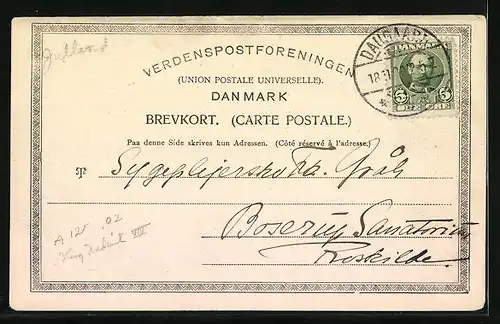 Jutland
VERDENSPOSTFORENINGEN
(UNION POSTALE UNIVERSELLE).
DANMARK
BREVKORT. (CARTE POSTALE.)
Paa denne Side skrives kun Adressen. (Côté réservé à l'adresse.)
DANMARK
5 5
ØRE
18
TIL
Sygeplejerske
Boserup Sanatorium
Roskilde.
A 12 02
King VIII